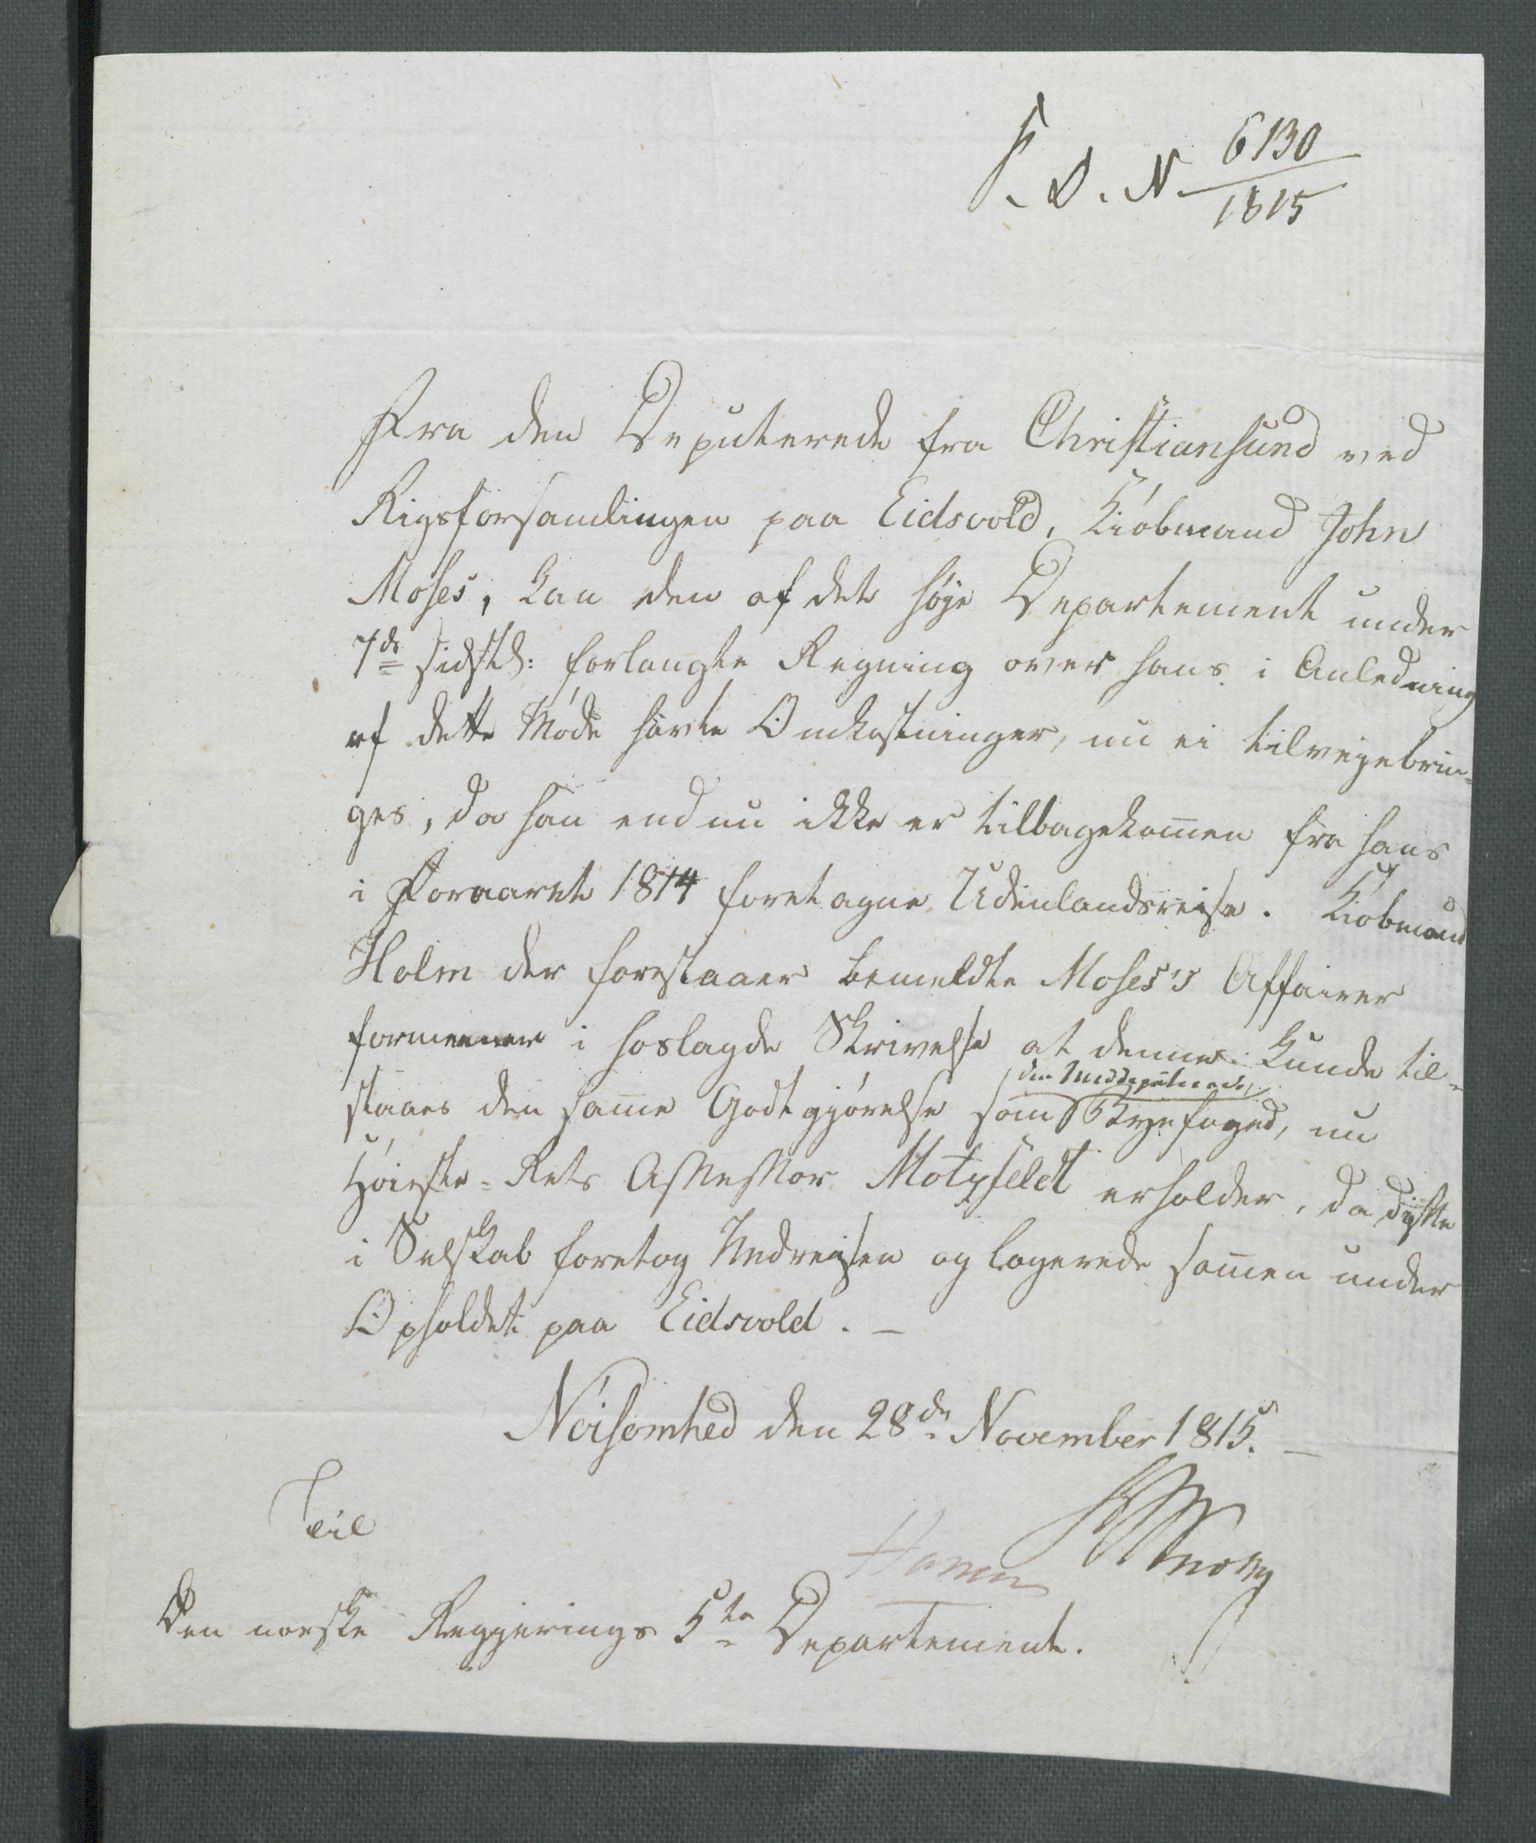 F. D. N 6130
1815
Fra den Deputerede fra Christiansund ved
Rigsforsamlingen paa Eidsvold, Kiöbmand John
Moses, kan den af det høje Departement under
7de sidstl: forlangte Regning over hans i Anledning
af dette Möde havte Omkostninger, nu ei tilvejebrin-
ges, da han endnu ikke er tilbagekom̅en fra hans
i Foraaret 1814 foretagne Udenlandsreise. Kiöbmand
Holm der forestaaer bemeldte Moses's Affairer
formeener i hoslagde Skrivelse at denne kunde til-
staaes den sam̅e Godtgjørelse som den Meddeputerede, Byefoged, nu
Höieste-Rets Assessor Motzfeldt erholder, da disse
i Selskab foretog Nedreisen og logerede sam̅en under
Opholdet paa Eidsvold. —
Nöisomhed den 28de November 1815. —
Til
Den norske Regjerings 5te Departement.